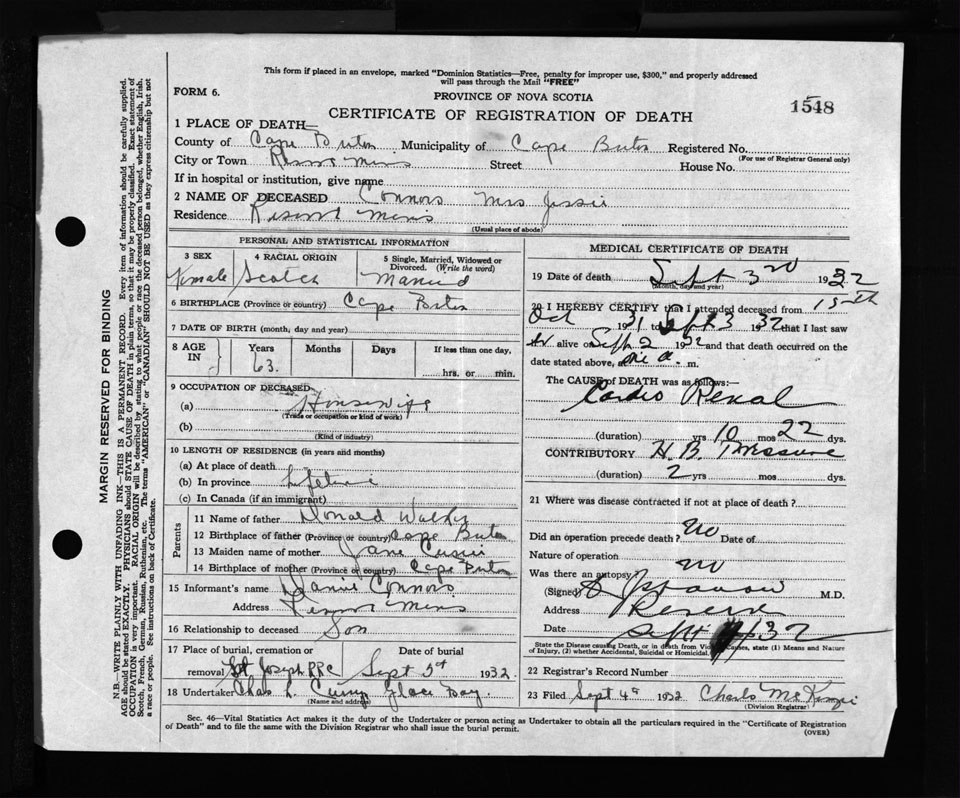 This form if placed in an envelope, marked "Dominion Statistics—Free, penalty for improper use, $300," and properly addressed
will pass through the Mail "FREE"
FORM 6.
PROVINCE OF NOVA SCOTIA
1548
CERTIFICATE OF REGISTRATION OF DEATH
1 PLACE OF DEATH—
County of Cape Breton Municipality of Cape Breton Registered No.
(For use of Registrar General only)
City or Town Reserve Mines Street House No.
If in hospital or institution, give name
2 NAME OF DECEASED Connors Mrs Jessie
Residence Reserve Mines
(Usual place of abode)
PERSONAL AND STATISTICAL INFORMATION
3 SEX 4 RACIAL ORIGIN 5 Single, Married, Widowed or Divorced. (Write the word)
Female Scotch Married
6 BIRTHPLACE (Province or country) Cape Breton
7 DATE OF BIRTH (month, day and year)
8 AGE IN Years Months Days If less than one day,
63 hrs. or min.
9 OCCUPATION OF DECEASED
(a) Housewife
(Trade or occupation or kind of work)
(b)
(Kind of industry)
10 LENGTH OF RESIDENCE (in years and months)
(a) At place of death
(b) In province Lifetime
(c) In Canada (if an immigrant)
Parents
11 Name of father Donald Walker
12 Birthplace of father (Province or country) Cape Breton
13 Maiden name of mother Jane
14 Birthplace of mother (Province or country) Cape Breton
15 Informant's name Connors
Address Reserve Mines
16 Relationship to deceased Son
17 Place of burial, cremation or removal St Joseph RRC Date of burial Sept 5th 1932
18 Undertaker Chas L. Curry Glace Bay
(Name and address)
MEDICAL CERTIFICATE OF DEATH
19 Date of death Sept 3rd 1932
(Month, day and year)
20 I HEREBY CERTIFY that I attended deceased from 15th
Oct 1931 to Sept 3 1932 that I last saw
hr alive on Sept 2 1932 and that death occurred on the
date stated above, at one a. m.
The CAUSE of DEATH was as follows:—
Cardio Renal
(duration) yrs 10 mos 22 dys.
CONTRIBUTORY H. B. Pressure
(duration) 2 yrs mos dys.
21 Where was disease contracted if not at place of death?
Did an operation precede death? No Date of
Nature of operation
Was there an autopsy? No
(Signed) M.D.
Address Reserve
Date Sept 32
State the Disease causing Death, or in death from Violent Causes, state (1) Means and Nature
of Injury, (2) whether Accidental, Suicidal or Homicidal.
22 Registrar's Record Number
23 Filed Sept 4th 1932 Charles McKenzie
(Division Registrar)
Sec. 46—Vital Statistics Act makes it the duty of the Undertaker or person acting as Undertaker to obtain all the particulars required in the "Certificate of Registration
of Death" and to file the same with the Division Registrar who shall issue the burial permit.
(OVER)
MARGIN RESERVED FOR BINDING
N.B.—WRITE PLAINLY WITH UNFADING INK—THIS IS A PERMANENT RECORD. Every item of information should be carefully supplied.
AGE should be stated EXACTLY. PHYSICIANS should STATE CAUSE OF DEATH in plain terms, so that it may be properly classified. Exact statement of
OCCUPATION is very important. RACIAL ORIGIN will be described by stating to what people or race the deceased person belonged, whether English, Irish,
Scotch, French, German, Russian, Ruthenian, etc. The terms "AMERICAN" or "CANADIAN" SHOULD NOT BE USED as they express citizenship but not
a race or people. See instructions on back of Certificate.